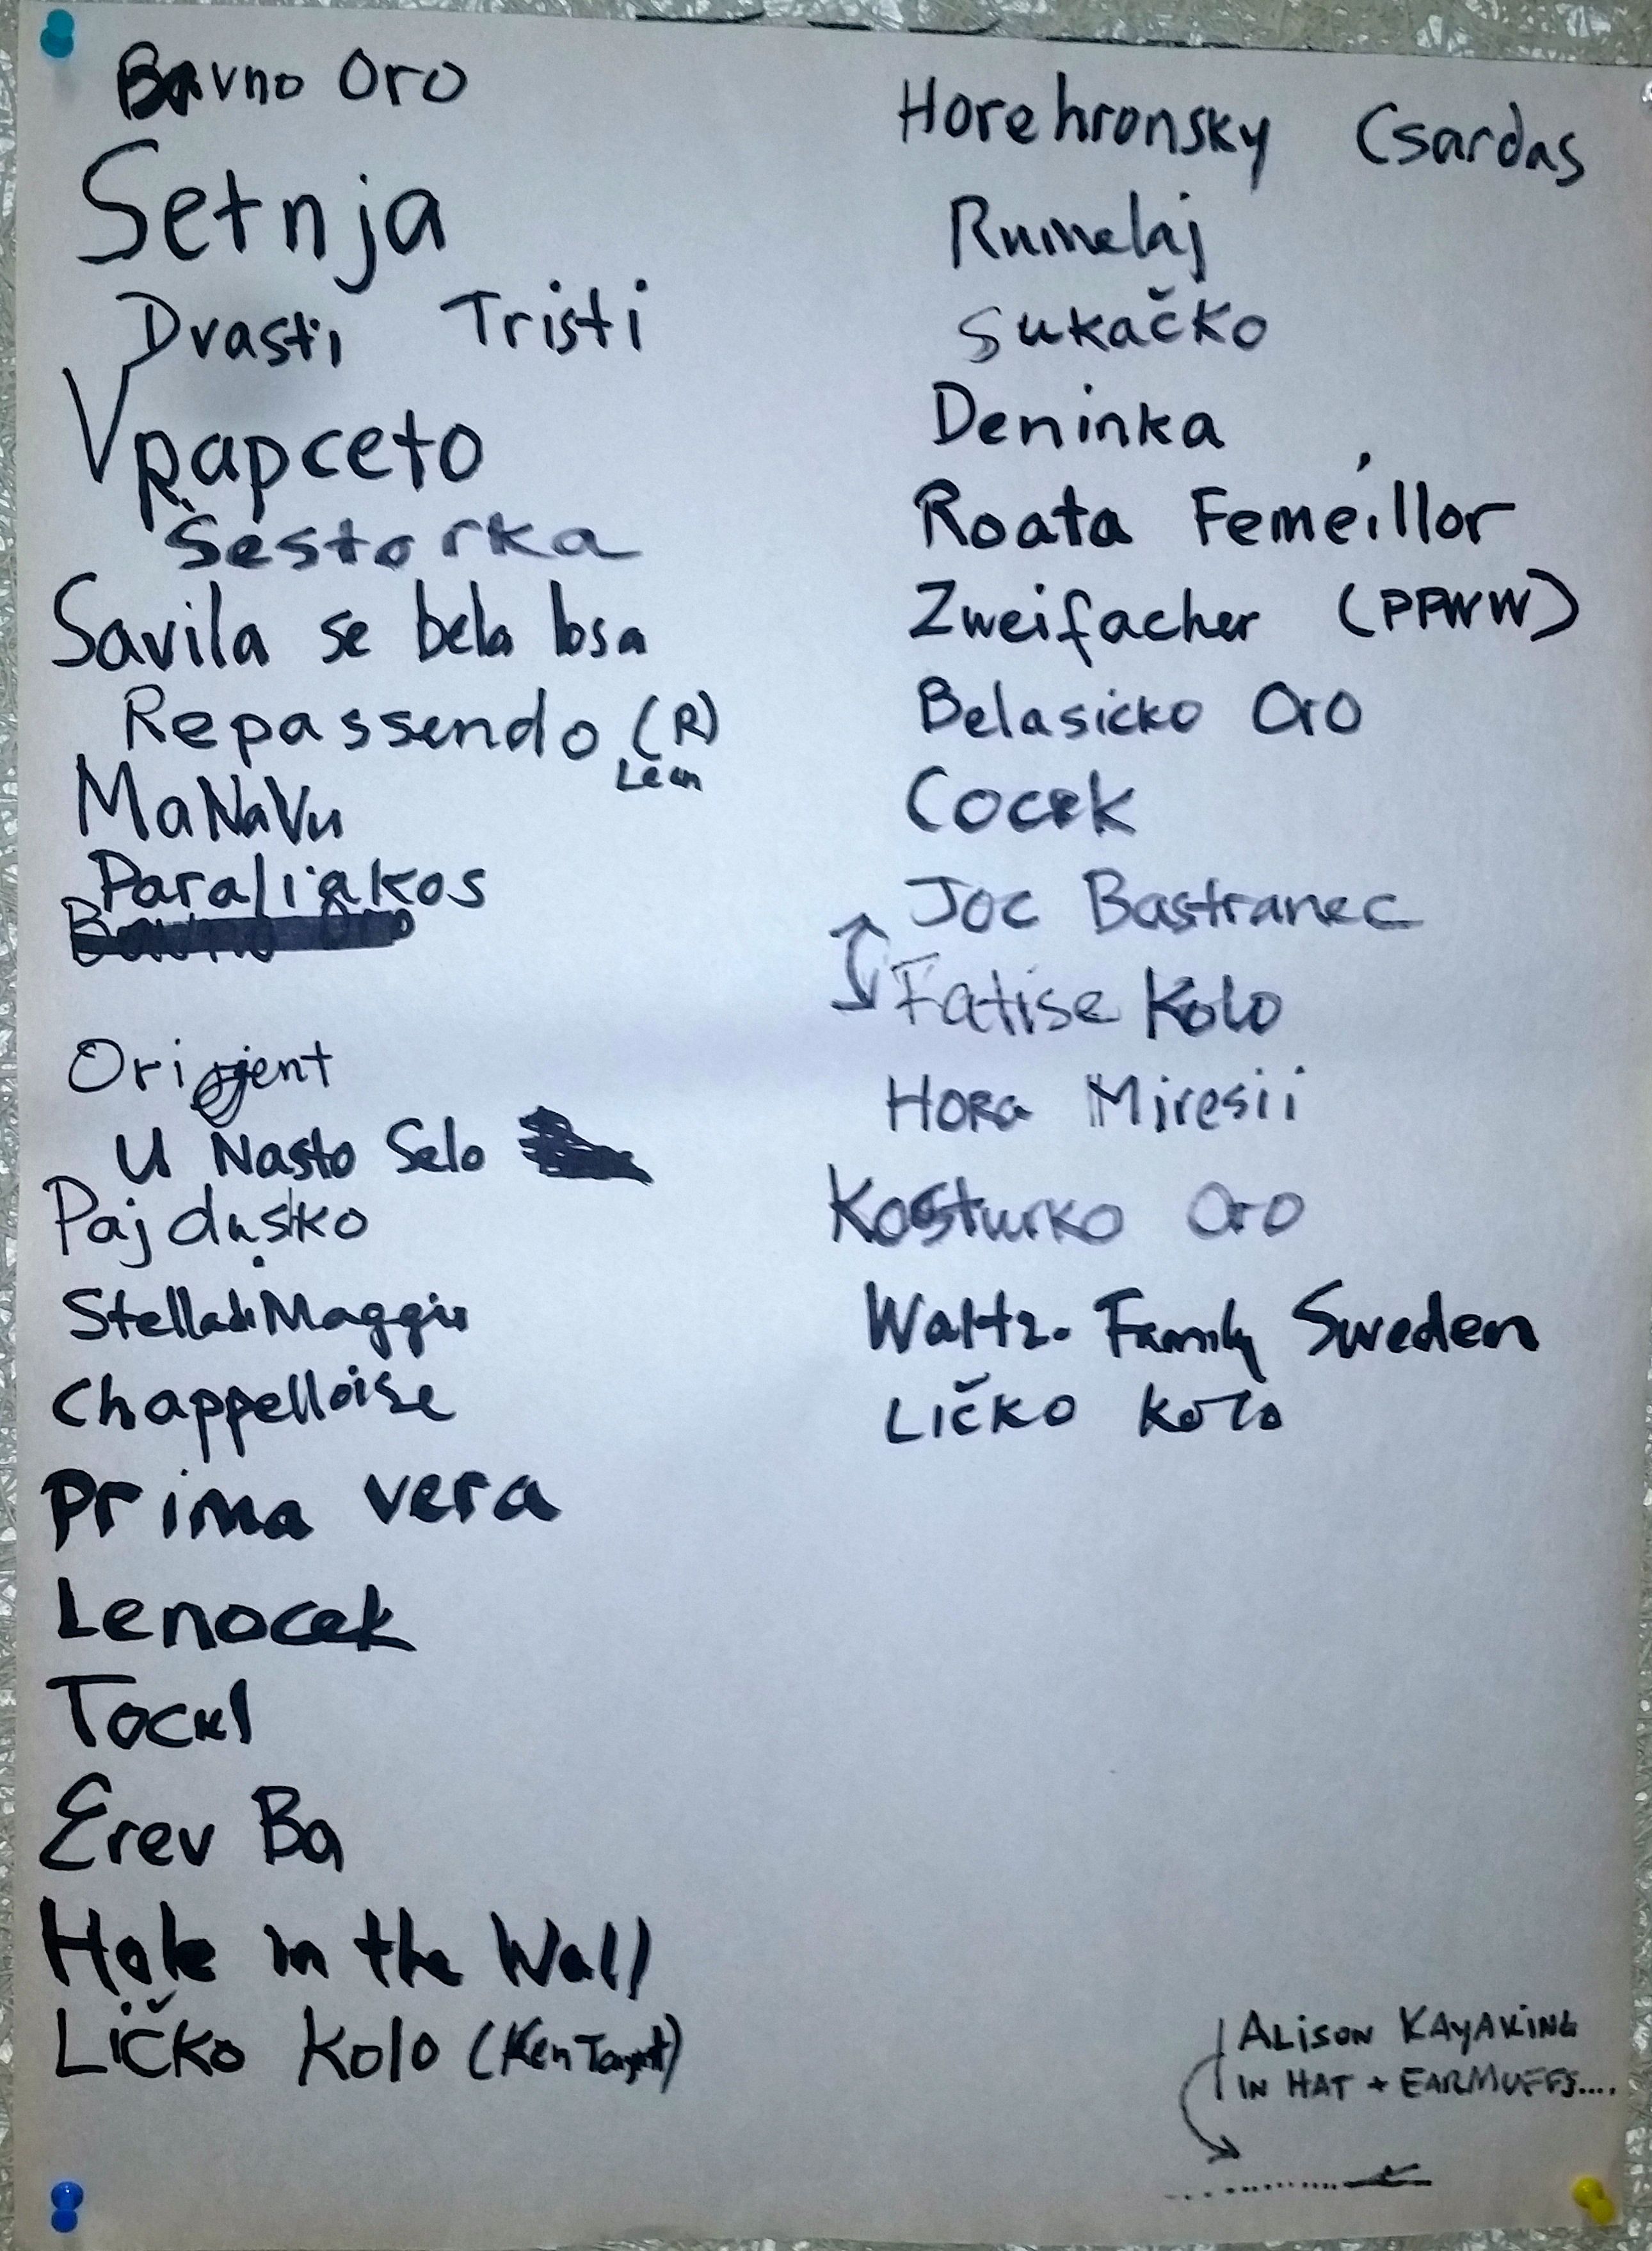 Bavno Oro
Setnja
Drasti Tristi
Vpapceto
Šestorka
Savila se bela losa
Repassendo (R)
Lean
MaNaVu
Paraliakos
Bavno Oro
Orijent
U Nasto Selo
Pajdusko
Stella di Maggio
Chappelloise
Prima vera
Lenocek
Tocul
Erev Ba
Hole in the Wall
Ličko Kolo (Ken Target)
Horehronsky Csardas
Rumelaj
Sukačko
Deninka
Roata Femeillor
Zweifacher (PPWW)
Belasicko Oro
Cocek
Joc Bastranec
Fatise Kolo
Hora Miresii
Kosturko Oro
Waltz. Family Sweden
Ličko Kolo
ALISON KAYAKING
IN HAT + EARMUFFS....